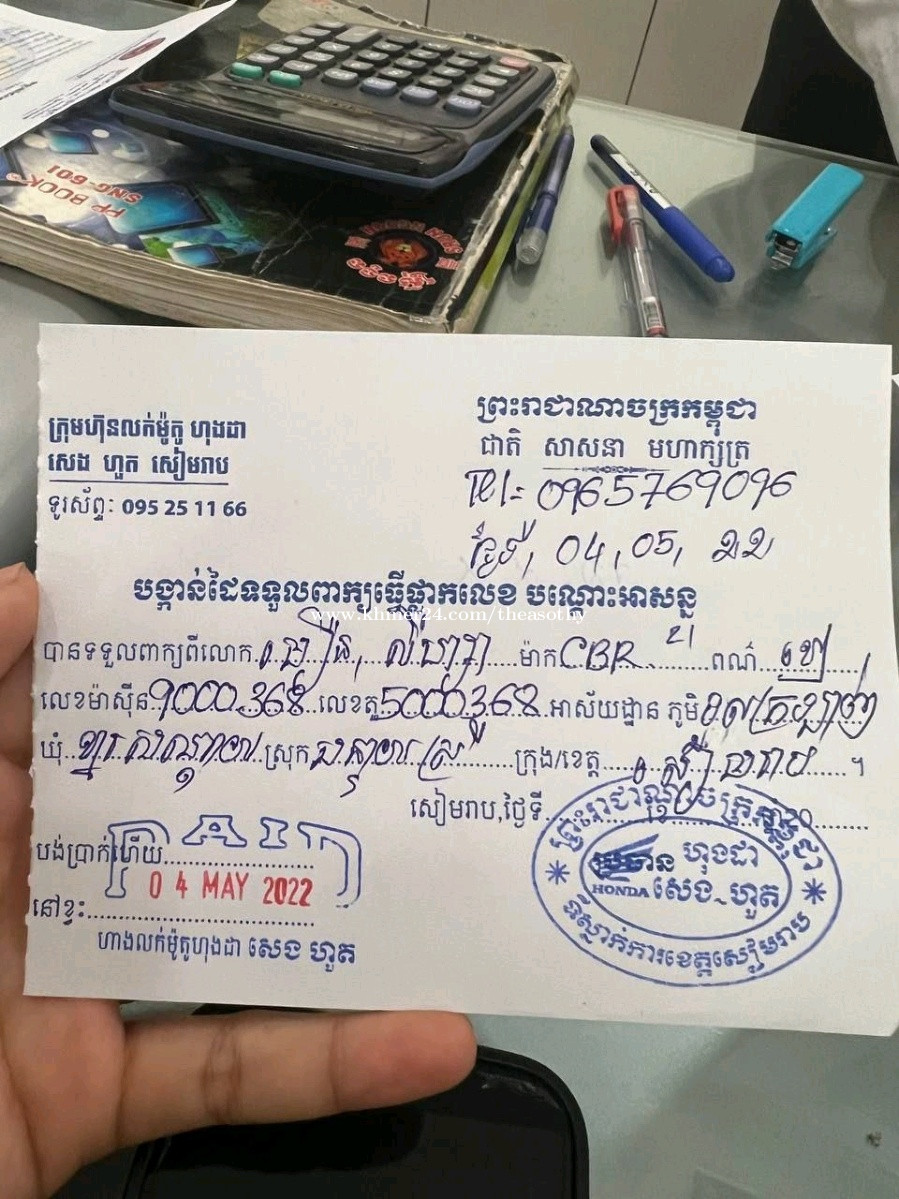 PP BOOK
SNG-601
ព្រះរាជាណាចក្រកម្ពុជា
ជាតិ សាសនា មហាក្សត្រ
ក្រុមហ៊ុនលក់ម៉ូតូ ហុងដា
សេង ហួត សៀមរាប
ទូរស័ព្ទ: 095 25 11 66
Tel: 0965769096
ថ្ងៃទី, 04, 05, 22
បង្កាន់ដៃទទួលពាក្យធ្វើផ្លាកលេខ បណ្តោះអាសន្ន
www.khmer24.com/theasothy
បានទទួលពាក្យពីលោក ម៉ាក CBR 21 ពណ៌
លេខម៉ាស៊ីន 9000368 លេខតួ 5000368 អាស័យដ្ឋាន ភូមិ
ឃុំ ស្រុក បន្ទាយស្រី ក្រុង/ខេត្ត សៀមរាប ។
សៀមរាប,ថ្ងៃទី 20
PAID
បង់ប្រាក់ហើយ
04 MAY 2022
នៅខ្វះ
ហាងលក់ម៉ូតូហុងដា សេង ហួត
ព្រះរាជាណាចក្រកម្ពុជា
ហុងដា
HONDA សេង ហួត
ទីស្នាក់ការខេត្តសៀមរាប